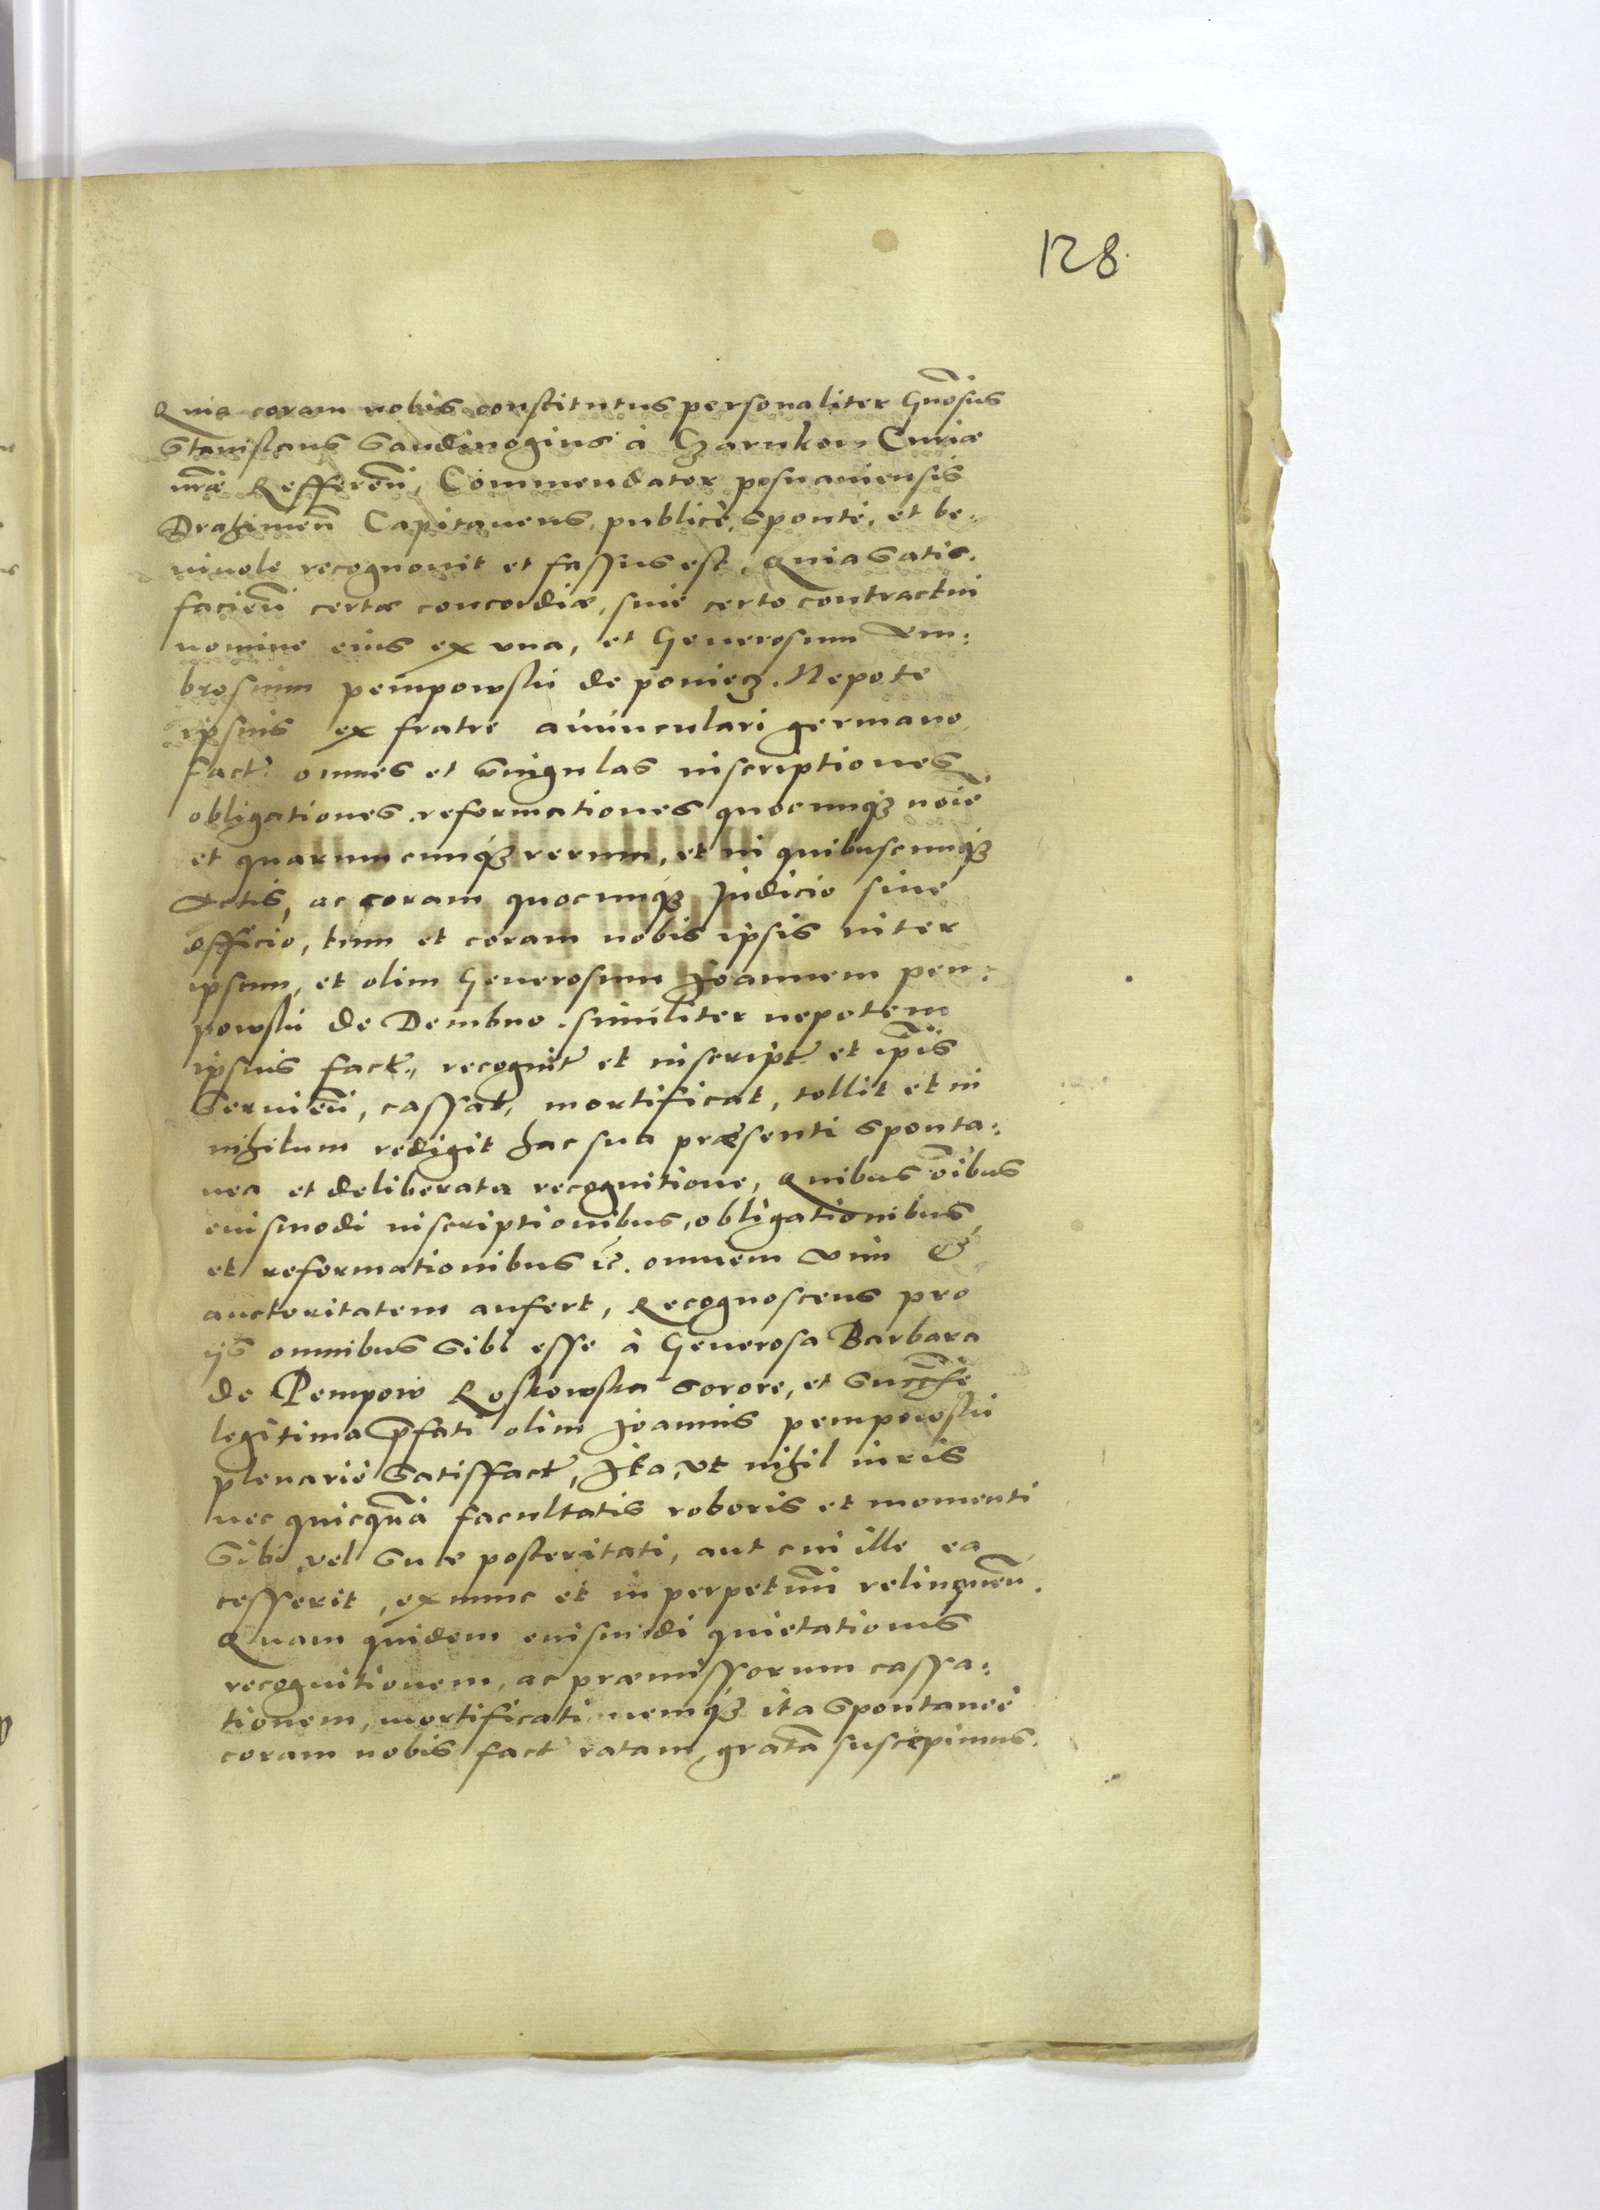 128.
Quia coram nobis constitutus personaliter Gnosus
Stanislaus Sandivogius à Czarnkow Curiæ
nræ Refferen, Commendator posnaniensis
Drahimen Capitaneus, publicè, sponte, et be-
nivole recognovit et fassus est, Quia satis.
facien certæ concordiæ, sive certo contractui
nomine eius ex una, et Generosum Am:
brosium pempowskii de poniecz. Nepote
ipsius ex fratre avunculari germano
fact: omnes et singulas inscriptiones
obligationes, reformationes quocunq3 noie
et quarumcunq3 rerum, et in quibuscunq3
Actis, ac coram quocunq3 Judicio sive
officio, tum et coram nobis ipsis inter
ipsum, et olim Generosum Joannem pem:
powskii de Dembno. similiter nepotem
ipsius fact., recognit et inscript et ipsis
servien, cassat, mortificat, tollit et in
nihilum redigit hac sua præsenti sponta:
nea et deliberata recognitione, Quibus oibus
euismodi inscriptionibus, obligationibus,
et reformationibus &c. omnem vim &
auctoritatem aufert, Recognoscens pro
ijs omnibus sibi esse à Generosa Barbara
de Pempow Roskowska sorore, et
legitima pfati olim Joannis pempowskii
plenarie satisfact, Ita, ut nihil iuris
nec quicquã facultatis roboris et momenti
Sibi vel suæ posteritati, aut cui ille ea
cesserit, ex nunc et in perpetuum relinquen.
Quam quidem euismodi quietationis
recognitionem, ac præmissorum cassa:
tionem, mortificationemq3 ita spontaneè
coram nobis fact ratam, gratã suscepimus.